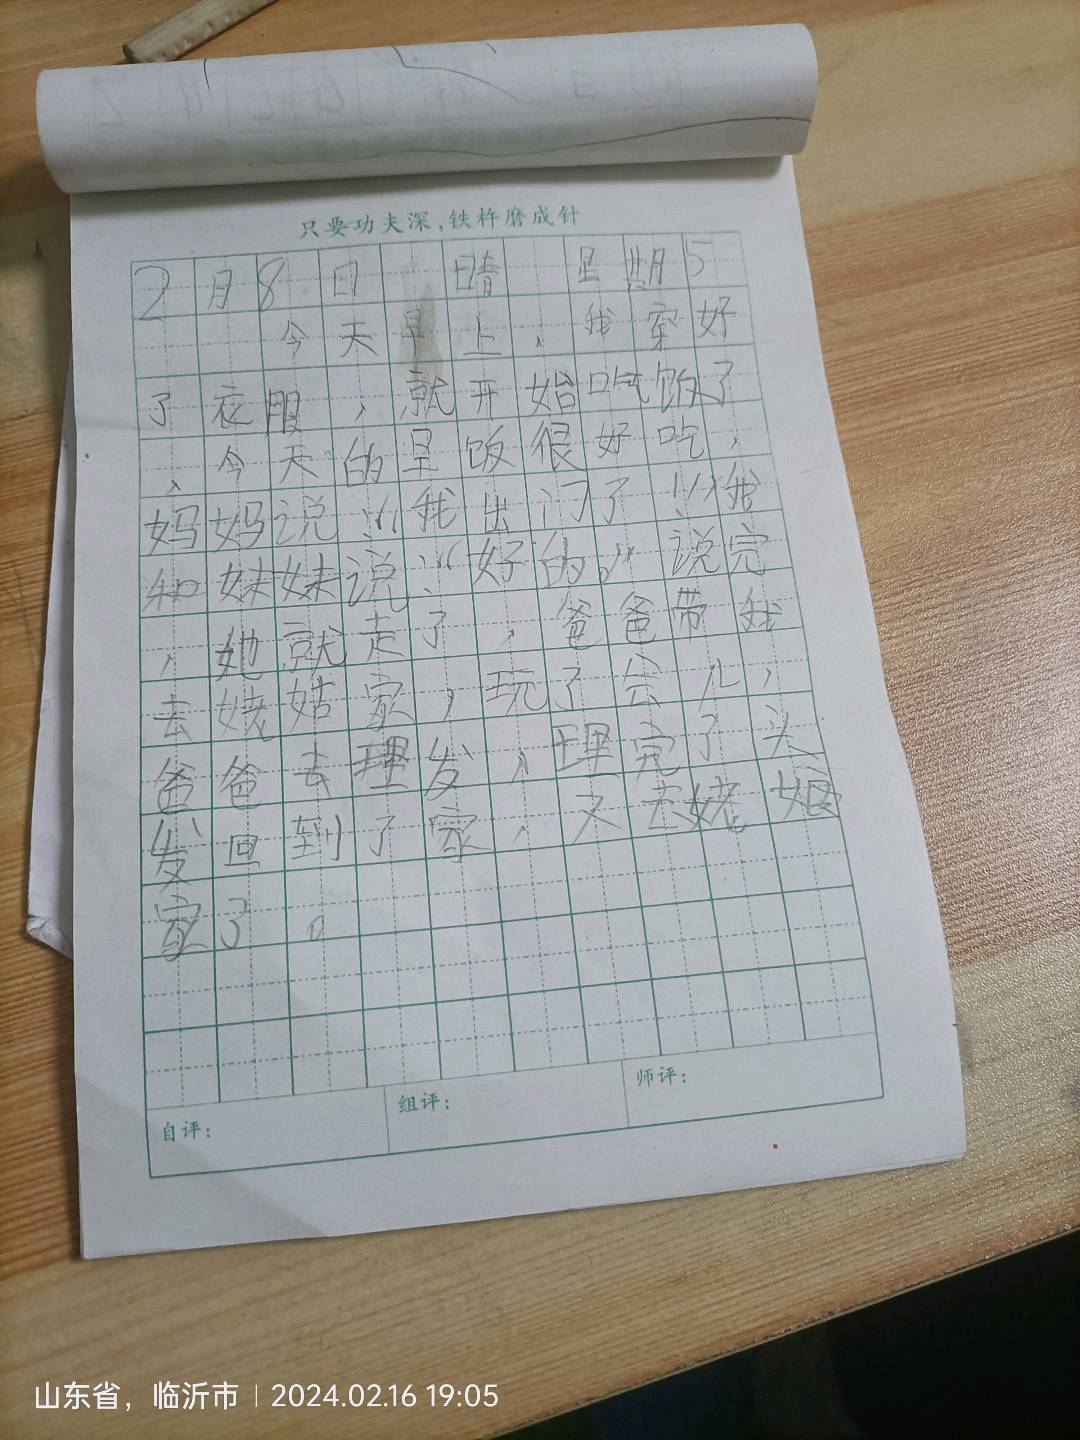 只要功夫深,铁杵磨成针
2月8日 晴 星期5
今天早上,我穿好
了衣服,就开始吃饭了
、今天的早饭很好吃,
妈妈说:“我出门了!”我
和妹妹说:“好的。”说完
,她就走了,爸爸带我
去姥姑家,玩了会儿,
爸爸去理发,理完了头
发回到了家,又去姥娘
家了。
自评:
组评:
师评:
山东省,临沂市 | 2024.02.16 19:05